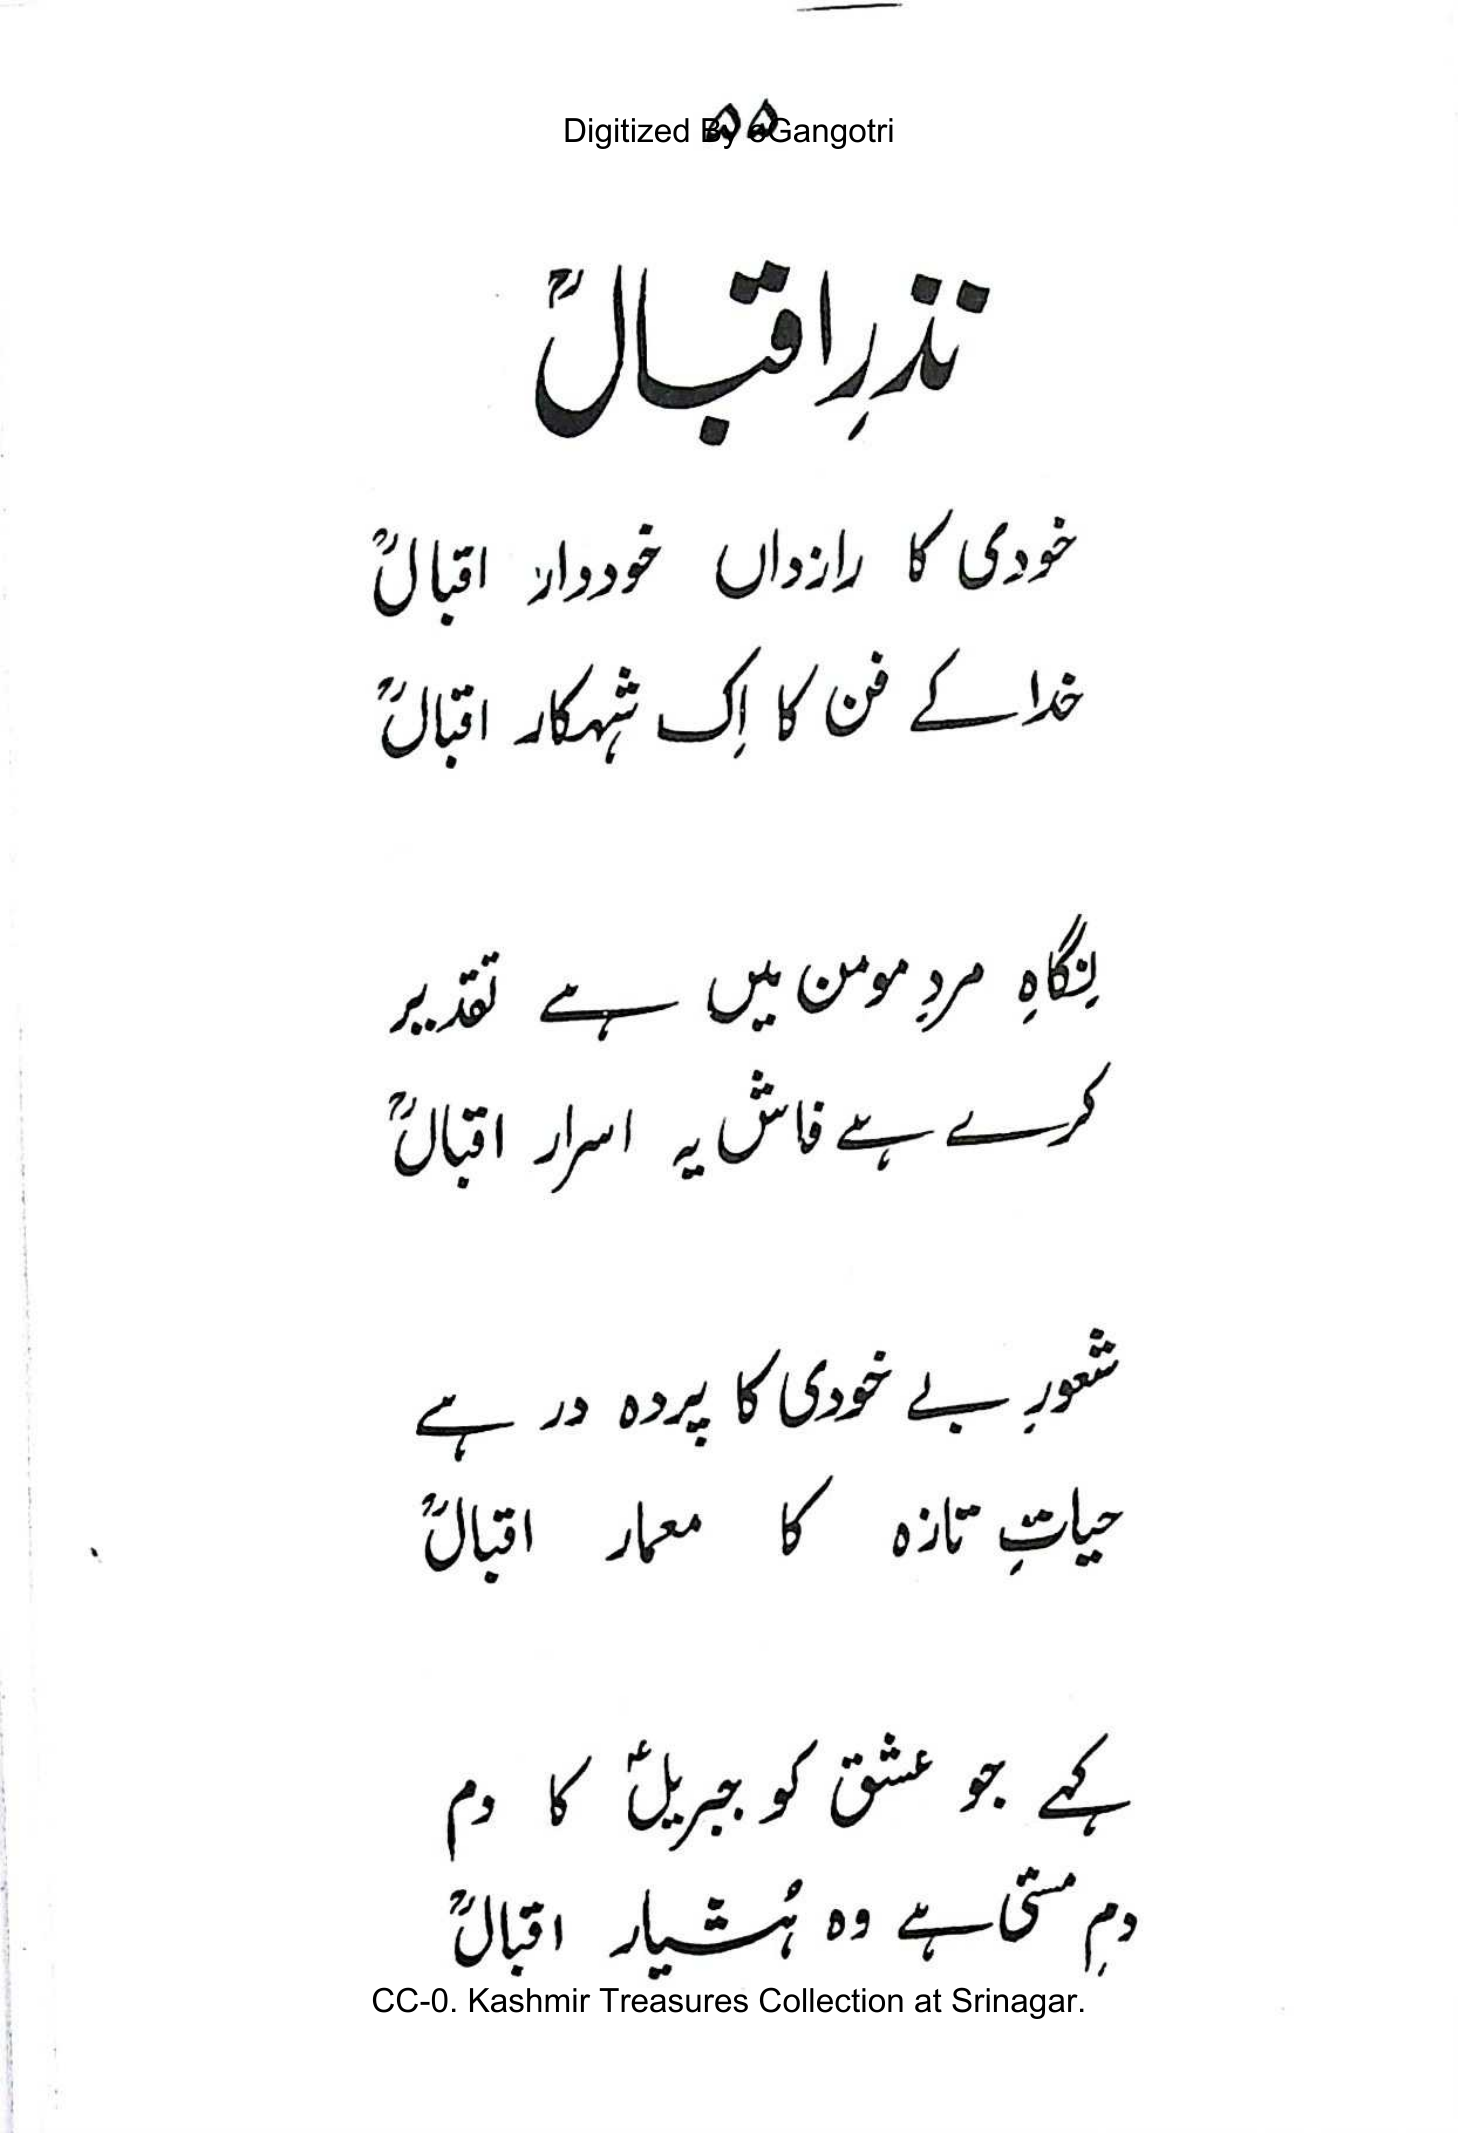 ۵۵
Digitized By eGangotri
نذرِ اقبالؒ
خودی کا رازداں خوددار اقبالؒ
خدا کے فن کا اِک شہکار اقبالؒ
نِگاہِ مردِ مومن میں ہے تقدیر
کرے ہے فاش یہ اسرار اقبالؒ
شعورِ بے خودی کا پردہ در ہے
حیاتِ تازہ کا معمار اقبالؒ
کہے جو عشق کو جبریلؑ کا دم
دمِ مستی ہے وہ ہُشیار اقبالؒ
CC-0. Kashmir Treasures Collection at Srinagar.